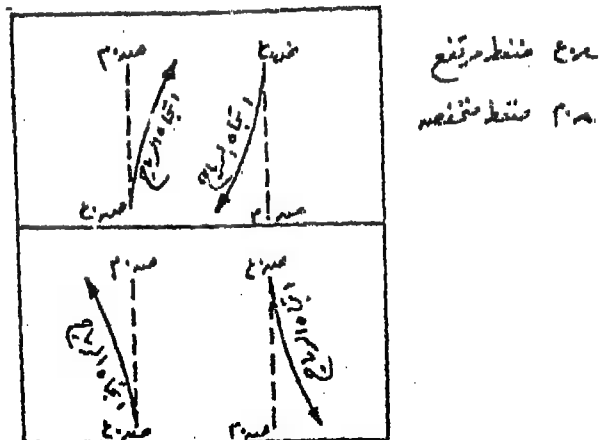 ض.ع ضغط مرتفع
ض.م ضغط منخفض
ض.م ض.ع
اتجاه الرياح اتجاه الرياح
ض.ع ض.م
ض.م ض.ع
اتجاه الرياح اتجاه الرياح
ض.ع ض.م